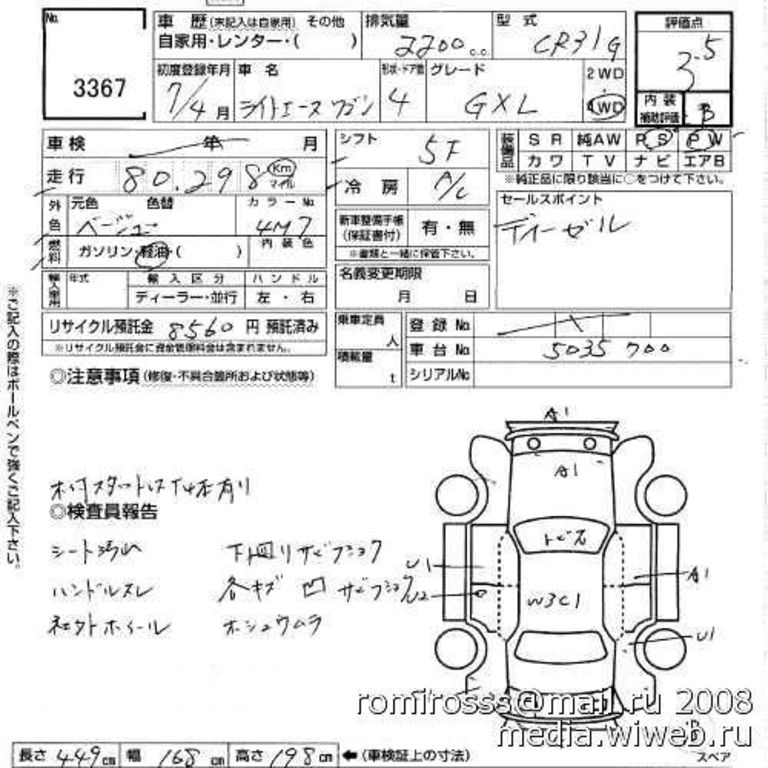 No. 3367
車歴 (未記入は自家用) その他
自家用・レンター・( )
排気量 2200 c.c.
型式 CR31G
評価点 3.5
初度登録年月 7/4 月
車名 ライトエース ワゴン
形状・ドア数 4
グレード GXL
2WD
4WD
内装補助評価 B
車検 年 月
走行 80.298 Km マイル
シフト 5F
冷房 A/C
装備品 SR 純AW PS PW
カワ TV ナビ エアB
※純正品に限り該当に○をつけて下さい。
外色 元色 ベージュ 色替 カラーNo 4M7
燃料 ガソリン・軽油・( ) 内装色
新車整備手帳 (保証書付) 有・無
※書類と一緒に保管下さい。
セールスポイント
ディーゼル
輸入車用 年式 輸入区分 ハンドル
ディーラー・並行 左・右
名義変更期限
月 日
リサイクル預託金 8560 円 預託済み
※リサイクル預託金に資金管理料金は含まれません。
乗車定員 人
積載量 t
登録No
車台No 5035700
シリアルNo
◎注意事項 (修復・不具合箇所および状態等)
※ご記入の際はボールペンで強くご記入下さい。
スタットレス T4本有り
◎検査員報告
シート汚れ 下回りサビフショク
ハンドルスレ 各キズ 凹 サビフショク
ホイール ホシュウムラ
A1
A1
トビ石
U1
A1
U2
W3C1
U1
スペア
長さ 449 cm 幅 168 cm 高さ 198 cm ←(車検証上の寸法)
romirosss@mail.ru 2008
media.wiweb.ru